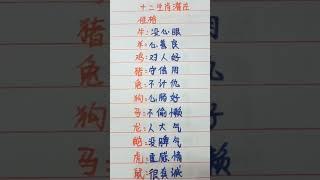 十二生肖潜在
性格
牛:没心眼
羊:心善良
鸡:对人好
猪:守信用
兔:不计仇
狗:心肠好
马:不偷懒
龙:人大气
蛇:没脾气
虎:重感情
鼠:很真诚